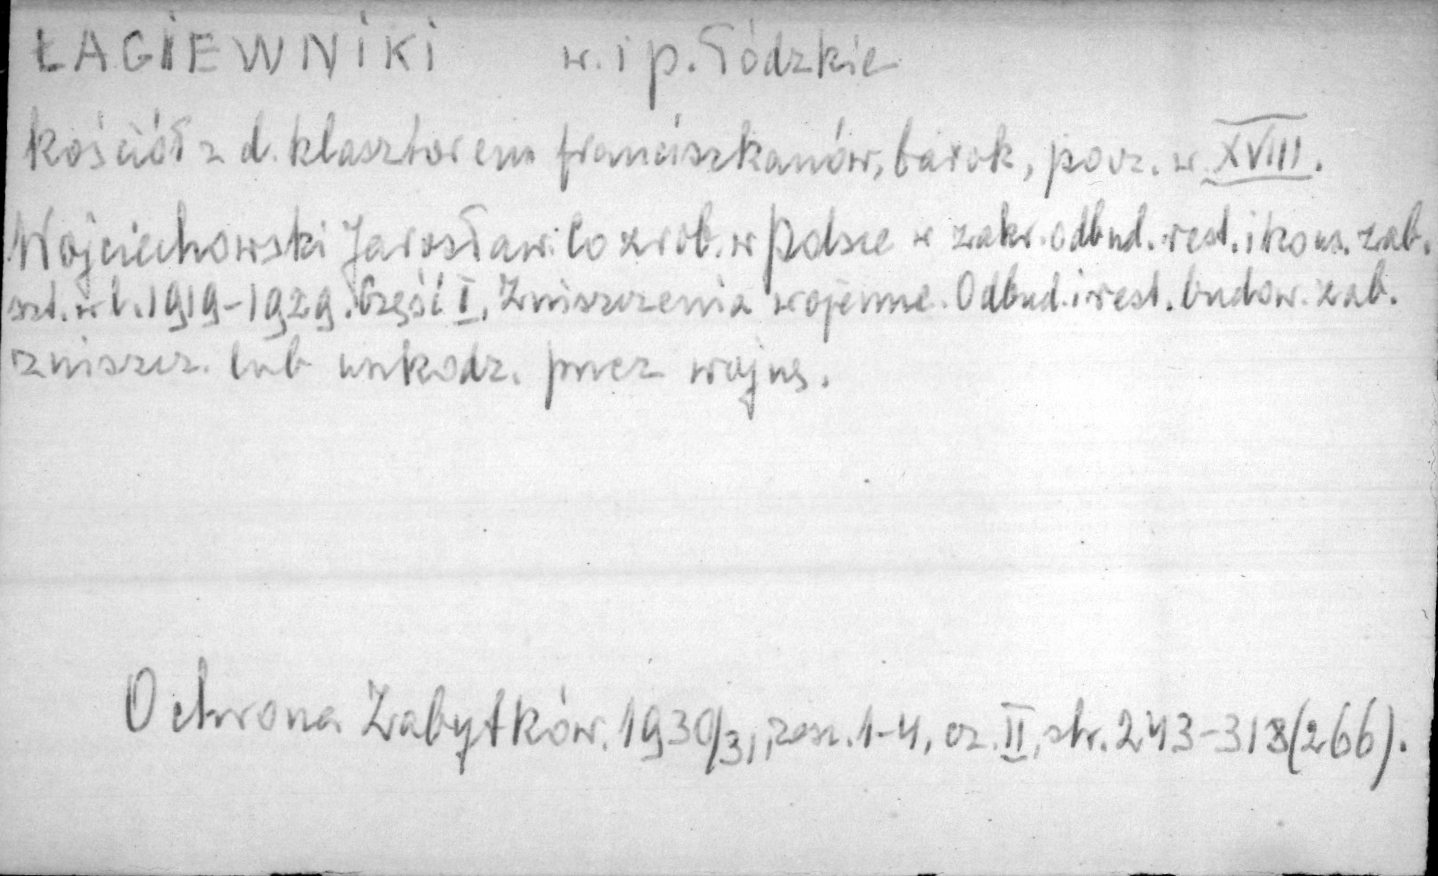 ŁAGIEWNIKI w. i p. Łódzkie
kościół z d. klasztorem franciszkanów, barok, pocz. w. XVIII.
Wojciechowski Jarosław: Co zrob. w Polsce w zakr. odbud. rest. i kons. zab.
szt. w l. 1919-1929. Część I, Zniszczenia wojenne. Odbud. i rest. budow. zab.
zniszcz. lub uszkodz. przez wojnę.
Ochrona Zabytków, 1930/31, zesz. 1-4, cz. II, str. 243-318 (266).